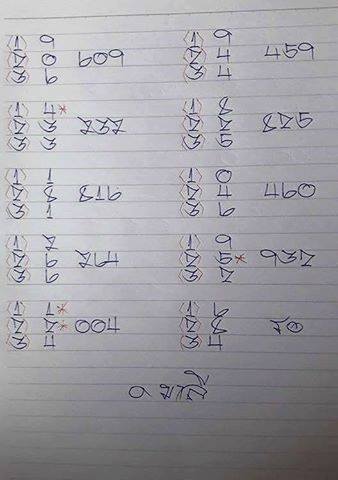 (1) 9 (1) 9
(2) 0 609 (2) 4 459
(3) 6 (3) 4
(1) 4* (1) 8
(2) 3 737 (2) 7 875
(3) 3 (3) 5
(1) 1 (1) 0
(2) 8 816 (2) 4 460
(3) 1 (3) 6
(1) 7 (1) 9
(2) 6 764 (2) 5* 937
(3) 6 (3) 7
(1) 1* (1) 6
(2) 7* 004 (2) 8 รอ
(3) 4 (3) 4